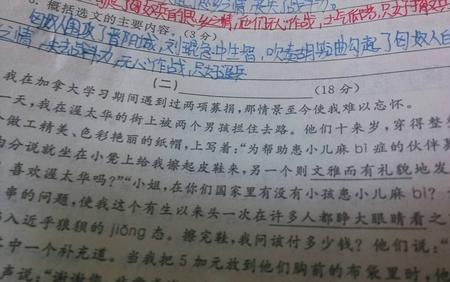 概括选文的主要内容。(3分)
匈奴人围攻了晋阳城,刘琨急中生智,吹奏胡笳曲勾起了匈奴人
之情,失去战斗力,无心作战,只好退兵
(二) (18 分)
我在加拿大学习期间遇到过两项募捐,那情景至今使我难以忘怀。
一天,我在渥太华的街上被两个男孩拦住去路。他们十来岁,穿得整
个做工精美、色彩艳丽的纸帽,上写着:“为帮助患小儿麻 bì 症的伙伴募
由分说就坐在小凳上给我擦起皮鞋来,另一个则文雅而有礼貌地发
喜欢渥太华吗?”“小姐,在你们国家里有没有小孩患小儿麻 bì?
串的问题,使我这个有生以来头一次在许多人都睁大眼睛看之
入近乎狼狈的 jiǒng 态。擦完鞋,我问该付多少钱?他们说:“
中一个补充道。当我把 5 加元放到他们胸前的布袋里时,他
声说:“谢谢您